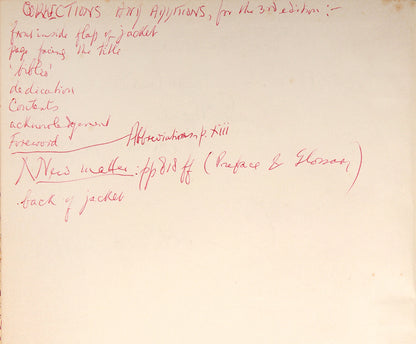 CORRECTIONS AND ADDITIONS, for the 3rd edition :-
front inside flap of jacket
page facing the title
'bibles'
dedication
Contents
acknowledgement
Foreword Abbreviations, p. xiii
New matter : pp 818 ff (Preface & Glossary)
back of jacket